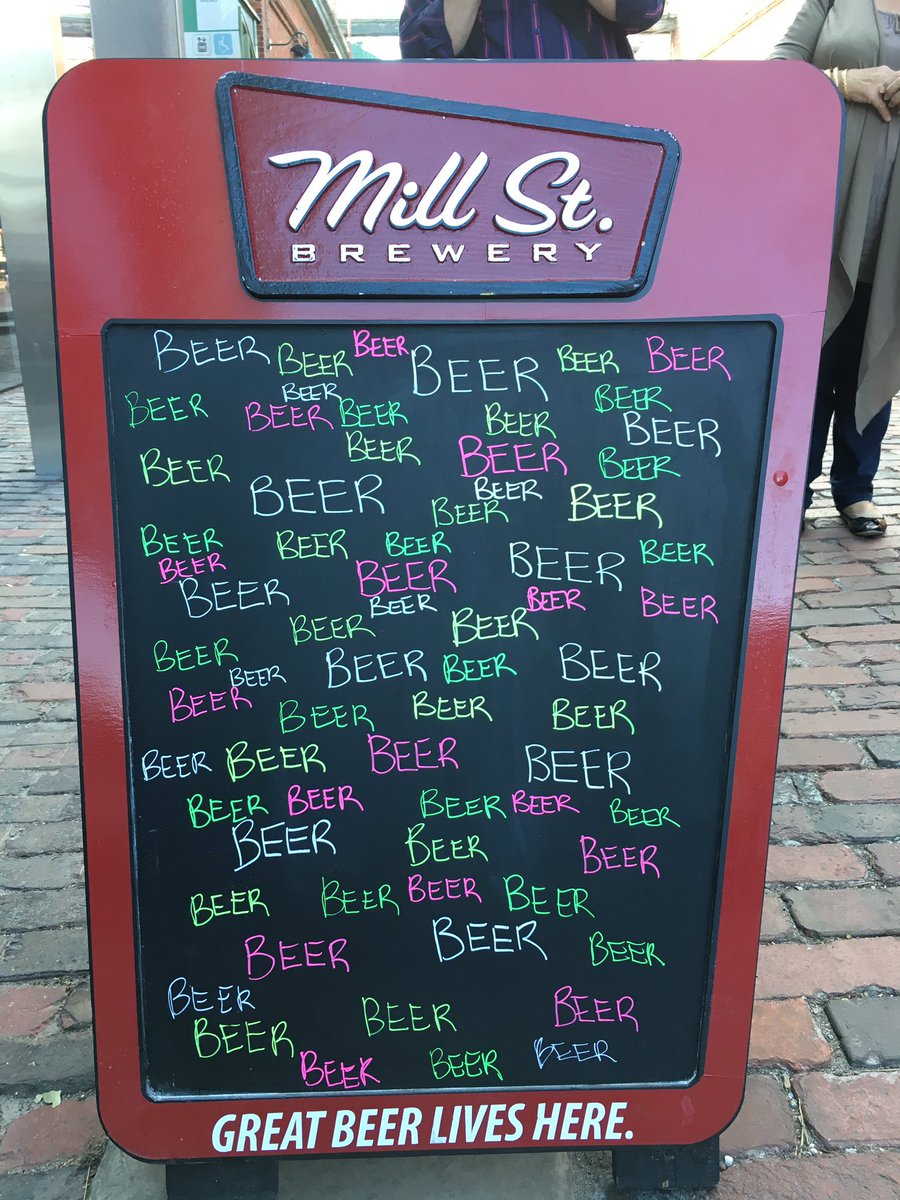 Mill St.
BREWERY
BEER BEER BEER BEER BEER BEER
BEER BEER BEER BEER BEER BEER BEER
BEER BEER BEER BEER
BEER BEER BEER BEER
BEER BEER BEER BEER BEER
BEER BEER
BEER BEER BEER BEER
BEER BEER
BEER BEER BEER BEER BEER
BEER BEER BEER BEER
BEER BEER BEER BEER
BEER BEER BEER BEER BEER
BEER BEER BEER
BEER BEER BEER BEER
BEER BEER BEER
BEER BEER BEER
BEER BEER BEER BEER
GREAT BEER LIVES HERE.